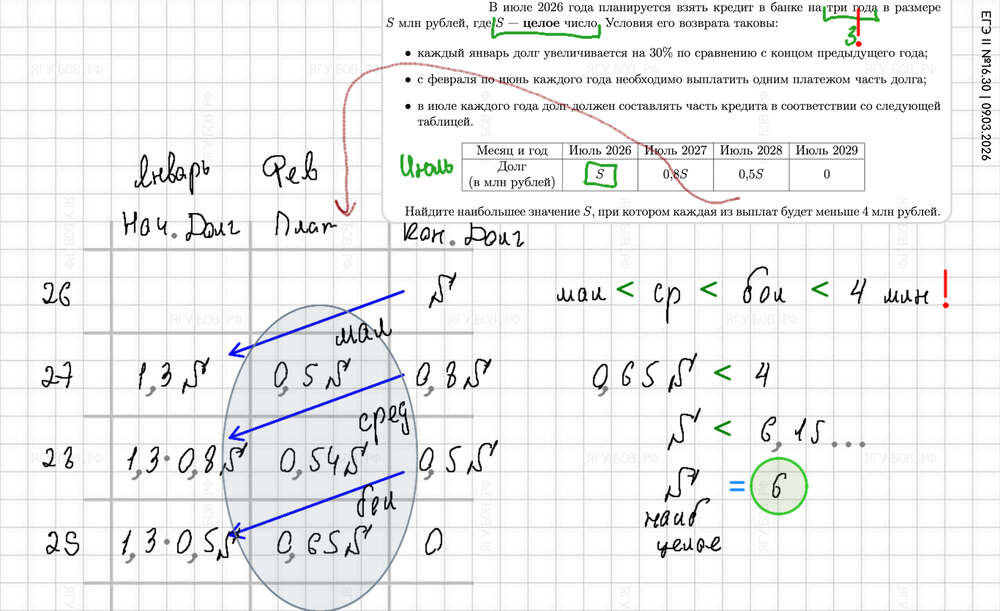 В июле 2026 года планируется взять кредит в банке на три года в размере
S млн рублей, где S — целое число. Условия его возврата таковы:
3
• каждый январь долг увеличивается на 30% по сравнению с концом предыдущего года;
• с февраля по июнь каждого года необходимо выплатить одним платежом часть долга;
• в июле каждого года долг должен составлять часть кредита в соответствии со следующей
таблицей.
Июль
Месяц и год Июль 2026 Июль 2027 Июль 2028 Июль 2029
Долг
(в млн рублей) S 0,8S 0,5S 0
Найдите наибольшее значение S, при котором каждая из выплат будет меньше 4 млн рублей.
ЕГЭ II №16.30 | 09.03.2026
Январь Фев
Нач. Долг Плат Кон. Долг
26 S
мал
27 1,3S 0,5S 0,8S
сред
28 1,3·0,8S 0,54S 0,5S
бол
29 1,3·0,5S 0,65S 0
мал < ср < бол < 4 млн !
0,65S < 4
S < 6,15...
S = 6
наиб
целое
ЯГУБОВ.РФ